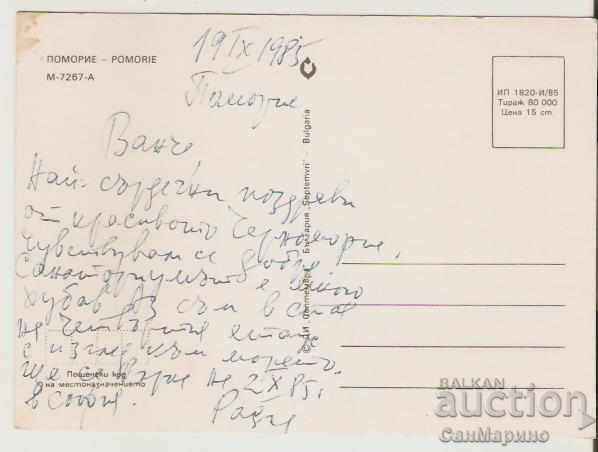 ПОМОРИЕ – POMORIE
М-7267-А
19 IX 1985
Поморие
Ванче,
Най-сърдечни поздрави
от красивото Черноморие.
Чувствувам се добре.
Санаториумът е много
хубав. Аз съм в стая
на четвъртия етаж
с изглед към морето.
Ще се върна на 2 X 85 г.
в София.
Пощенски код
на местоназначението
ДИ „Септември" България „Septemvri" - Bulgaria
ИП 1820-И/85
Тираж 80 000
Цена 15 ст.
BALKAN
auction
СанМарино